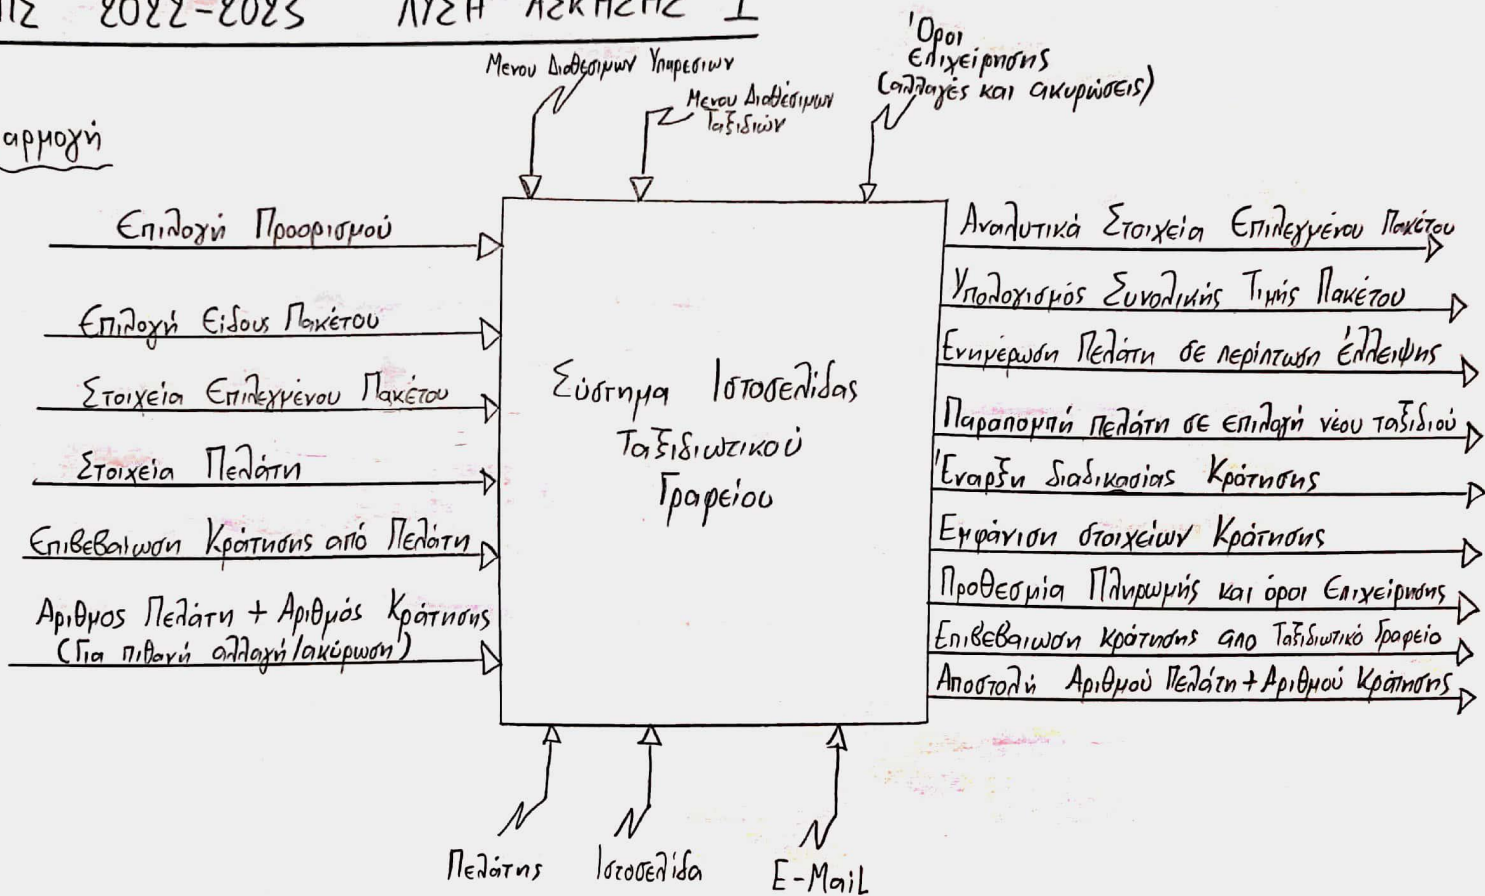 2022-2023 ΛΥΣΗ ΑΣΚΗΣΗΣ 1
Μενου Διαθέσιμων Υπηρεσιων
Μενου Διαθέσιμων
Ταξιδιών
Όροι
Επιχείρησης
(αλλαγές και ακυρώσεις)
αρμογή
Επιλογή Προορισμού
Επιλογή Είδους Πακέτου
Στοιχεία Επιλεγμένου Πακέτου
Στοιχεία Πελάτη
Επιβεβαιωση Κράτησης από Πελάτη
Αριθμος Πελάτη + Αριθμός Κράτησης
(Για πιθανή αλλαγή/ακύρωση)
Σύστημα Ιστοσελίδας
Ταξιδιωτικού
Γραφείου
Αναλυτικά Στοιχεία Επιλεγμένου Πακέτου
Υπολογισμός Συνολικής Τιμής Πακέτου
Ενημέρωση Πελάτη σε περίπτωση έλλειψης
Παραπομπή πελάτη σε επιλογή νέου ταξιδιού
Έναρξη διαδικασίας Κράτησης
Εμφάνιση στοιχείων Κράτησης
Προθεσμία Πληρωμής και όροι Επιχείρησης
Επιβεβαιωση κράτησης απο Ταξιδιωτικό Γραφείο
Αποστολή Αριθμού Πελάτη + Αριθμού Κράτησης
Πελάτης
Ιστοσελίδα
E-MaiL